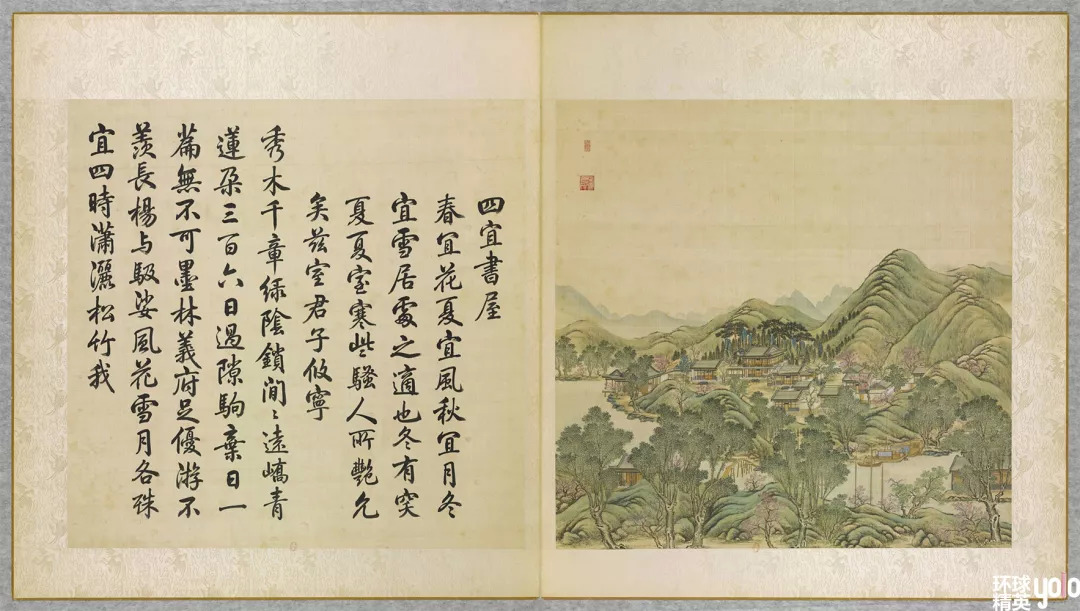 四宜書屋
春宜花夏宜風秋宜月冬
宜雪居處之適也冬有突
夏夏室寒些騷人所艷允
矣茲室君子攸寧
秀木千章綠陰鎖間〻遠嶠青
蓮朶三百六日過隙駒棄日一
篇無不可墨林義府足優游不
羨長楊与馺娑風花雪月各殊
宜四時瀟灑松竹我
环球
精英
yolo